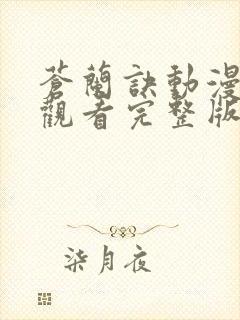 蒼蘭訣動漫
觀看完整版
柒月夜